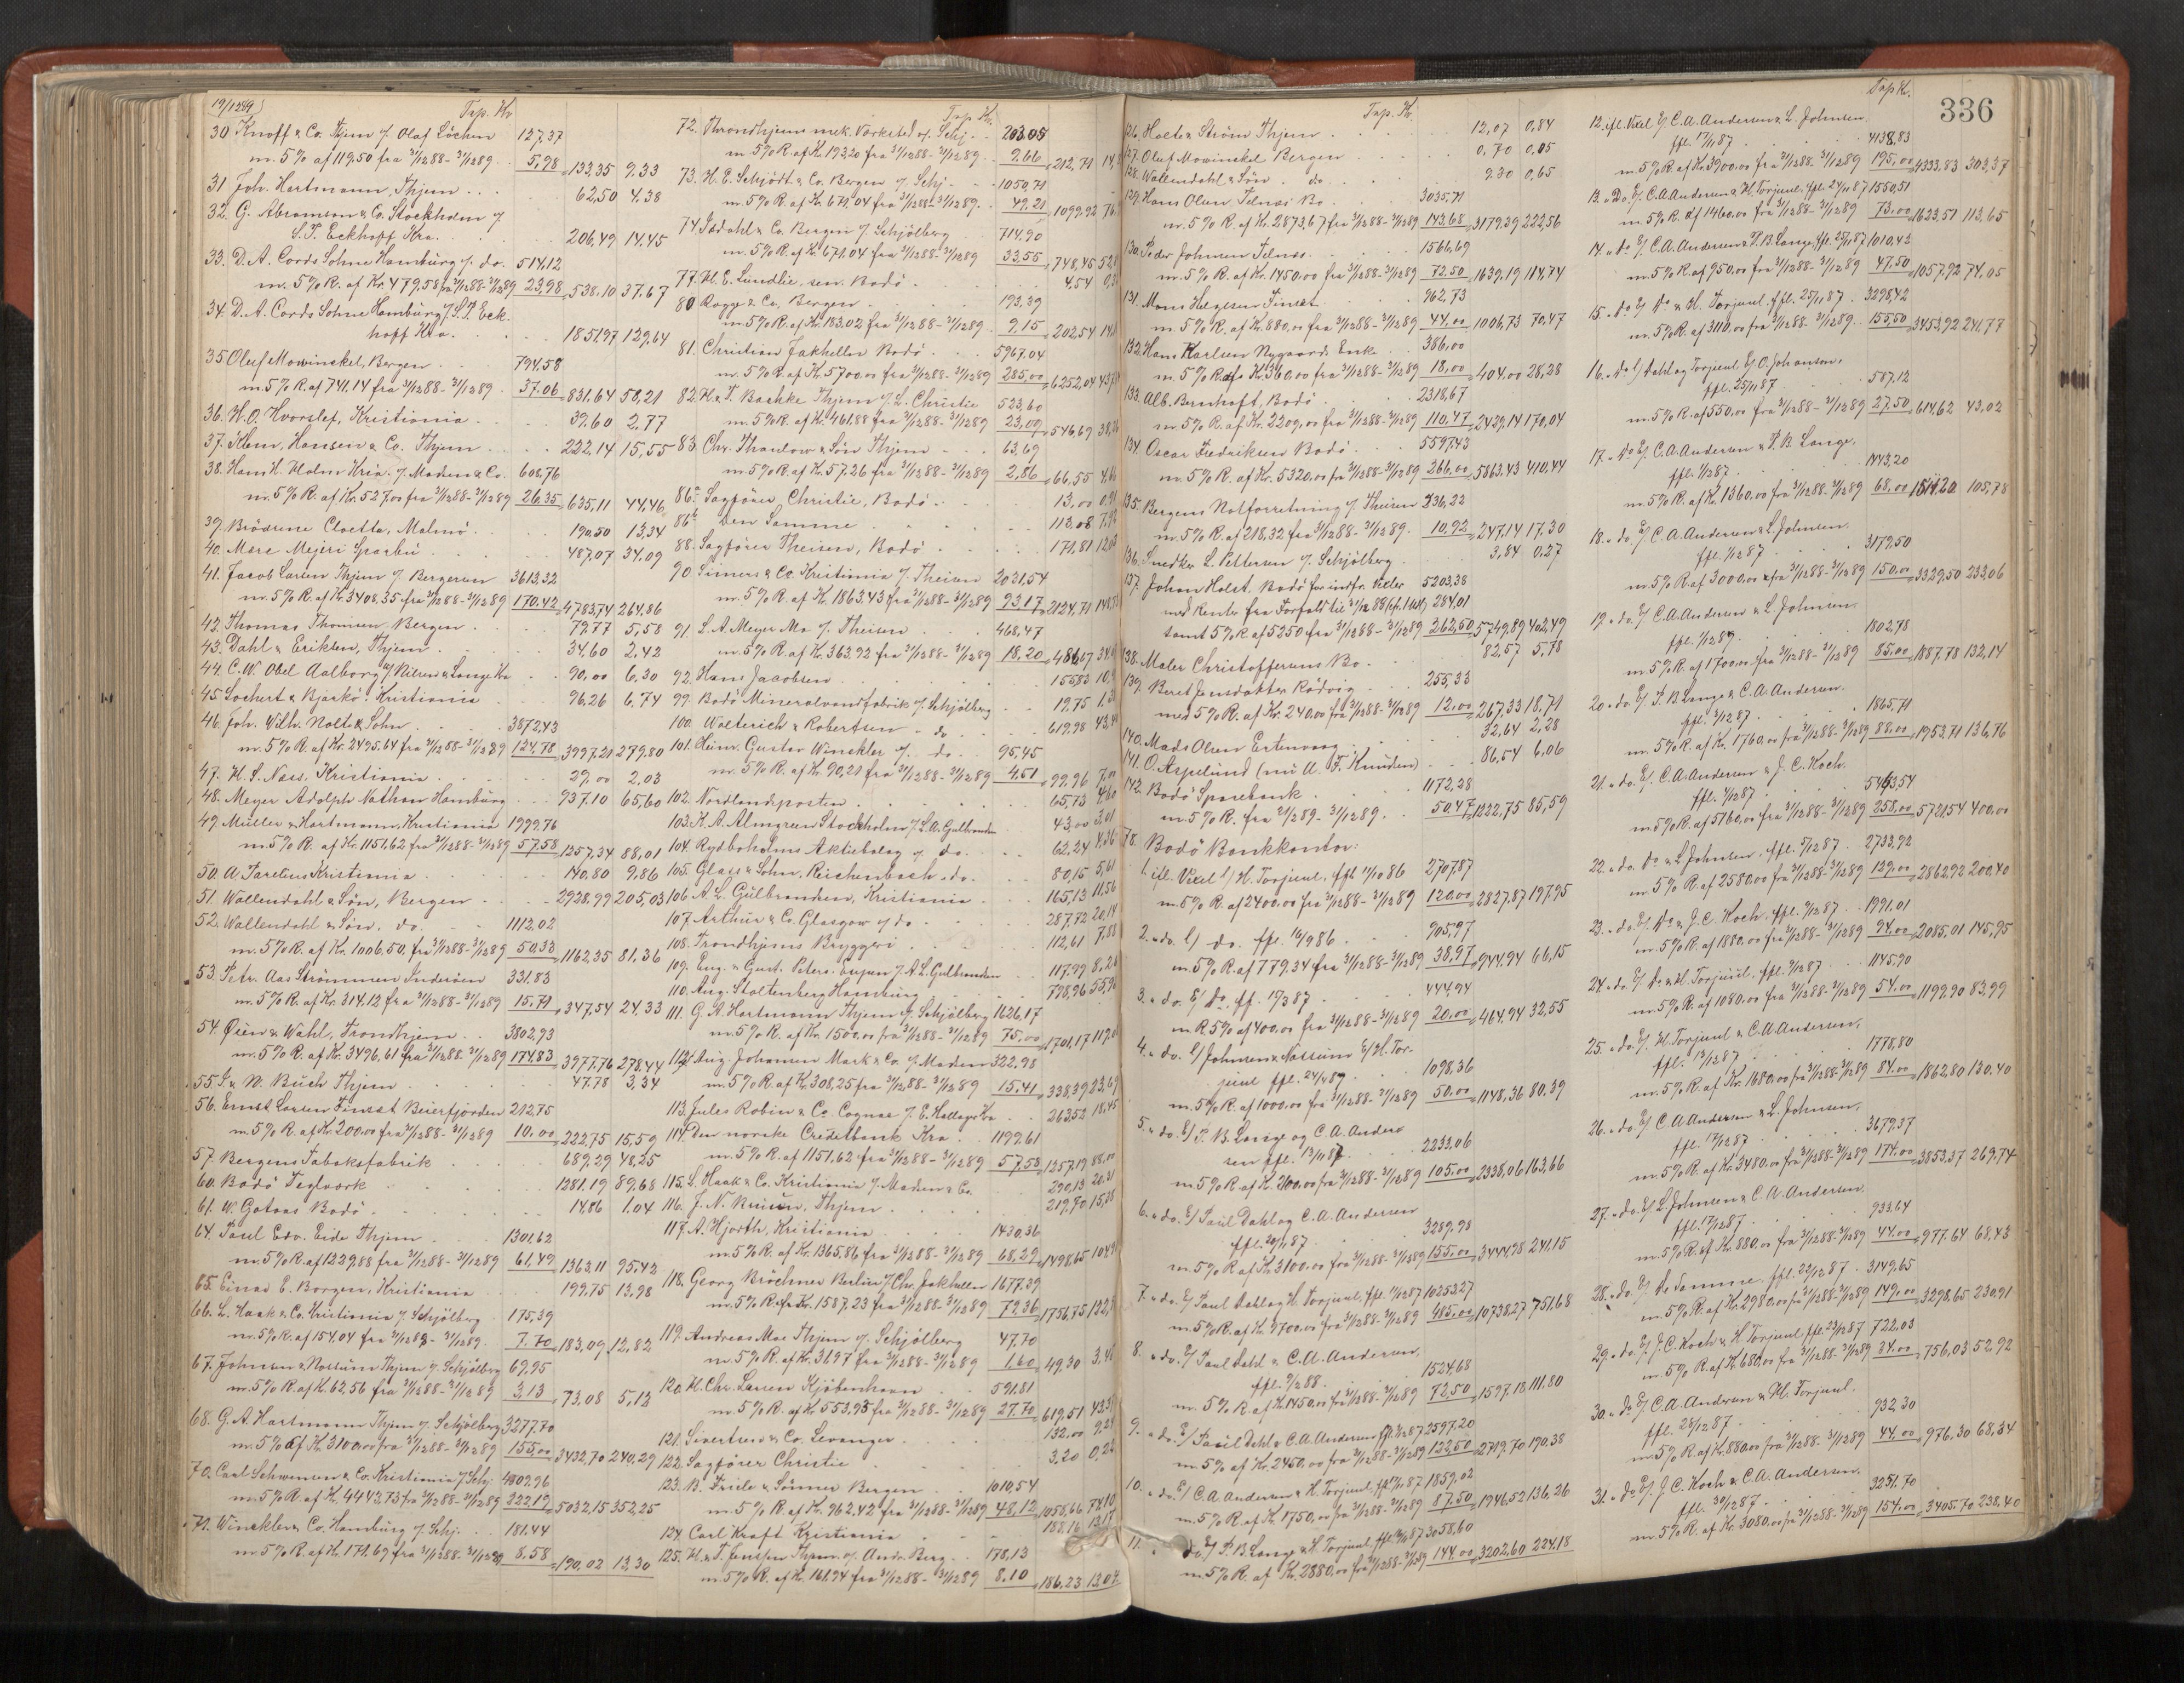 19/12 89
Tap. Kr
30 Knoff & Co. Thjem v/ Olaf Löchen 127,37
m. 5% af 119,50 fra 31/12 88 - 31/12 89 5,98 133,35 9.33
31 Joh. Hartmann, Thjem 62,50 4.38
32. G. Abramson & Co. Stockholm v/
S. T. Eckhoff Kra. 206,49 14.45
33. D. A. Cords Sohne Hamburg v/ do. 514,12
m. 5% R. af Kr. 479,58 fra 31/12 88 - 31/12 89 23,98 538.10 37.67
34. D. A. Cords Sohne Hamburg v/ S. T. Eck-
hoff Kra. 1851,97 129,64
35 Oluf Mowinckel, Bergen 794,58
m. 5% R. af 741.14 fra 31/12 88 - 31/12 89 37.06 831.64 58,21
36. H. O. Hvorslef, Kristiania 39.60 2,77
37. Klem, Hansen & Co. Thjem 222,14 15,55
38. Hans H. Holm Kria. v/ Madsen & Co. 608,76
m. 5% R. af Kr. 527,00 fra 31/12 88 - 31/12 89 26.35 635,11 44,46
39. Brödrene Cloetta, Malmö 190,50 13,34
40. Mære Mejeri Sparbu 487,07 34.09
41. Jacob Larsen Thjem v/ Bergersen 3613,32
m. 5% R. af Kr. 3408,35 fra 31/12 88 - 31/12 89 170.42 3783,74 264.86
42. Thomas Thomsen Bergen 79.77 5,58
43. Dahl & Eriksen, Thjem 34.60 2.42
44. C. W. Obel Aalborg v/ Nilsen & Lange Kra 90,00 6.30
45. Sochert & Bjerkö. Kristiania 96.26 6.74
46. Joh. Wilh. Nolte & Sohn 3872,43
m. 5% R. af Kr. 2495.64 fra 31/12 88 - 31/12 89 124,78 3997,21 279.80
47. H. S. Næss. Kristiania 29,00 2.03
48. Meyer Adolph Nathan Hamburg 937.10 65,60
49. Müller & Hartmann, Kristiania 1199,76
m. 5% R. af Kr. 1151,62 fra 31/12 88 - 31/12 89 57.58 1257,34 88,01
50. A. Paretius Kristiania 140.80 9,86
51. Wallendahl & Søn, Bergen 2928,99 205,03
52. Wallendahl & Søn. do. 1112,02
m. 5% R. af Kr. 1006.50 fra 31/12 88 - 31/12 89 50,33 1162,35 81,36
53. Petr. Aas Strömmen Inderöen 331.83
m. 5% R. af Kr. 314.12 fra 31/12 88 - 31/12 89 15,71 347,54 24.33
54. Øien & Wahl, Trondhjem 3802,93
m. 5% R. af Kr. 3496,61 fra 31/12 88 - 31/12 89 174.83 3977,76 278,44
55. I. & W. Buch Thjem 47.78 3,34
56. Ernst Larsen Finset Beierfjorden 212,75
m. 5% R. af Kr. 200,00 fra 31/12 88 - 31/12 89 10.00 222,75 15,59
57. Bergens Tabaksfabrik 689,29 48,25
60. Bodö Teglværk 1281.19 89,68
61. W. Gotaas Bodö 14,86 1.04
64. Paul Edv. Eide Thjem 1301,62
m. 5% R. af 1229,88 fra 31/12 88 - 31/12 89 61,49 1363,11 95.42
65. Einar E. Borgen, Kristiania 199,75 13,98
66. L. Haak & Co. Kristiania v/ Schjölberg 175,39
m. 5% R. af 154.04 fra 31/12 88 - 31/12 89 7.70 183,09 12,82
67. Johnsen & Nossum Thjem v/ Schjölberg 69,95
m. 5% R. af Kr. 62,56 fra 31/12 88 - 31/12 89 3,13 73,08 5,12
68. G. A. Hartmann Thjem v/ Schjölberg 3277,70
m. 5% af Kr. 3100,00 fra 31/12 88 - 31/12 89 155,00 3432,70 240,29
70. Carl Schwensen & Co. Kristiania v/ Schj. 4809.96
m. 5% R. af Kr. 4443,73 fra 31/12 88 - 31/12 89 222,19 5032,15 352,25
71. Winckler & Co. Hamburg v/ Schj. 181.44
m. 5% R. af Kr. 171.69 fra 31/12 88 - 31/12 89 8.58 190,02 13,30
Tap Kr.
72. Throndhjems mek. Værksted v/ Schj. 203.05
m. 5% R. af Kr. 193,20 fra 31/12 88 - 31/12 89 9,66 212,71
73. H. E. Schjödt & Co. Bergen v/ Schj. 1050,71
m. 5% R. af Kr. 671,04 fra 31/12 88 - 31/12 89 49,21 1099,92
74. Isdahl & Co. Bergen v/ Schjölberg 714.90
m. 5% R. af Kr. 671,04 fra 31/12 88 - 31/12 89 33,55 748,45
77. H. E. Lundlie, sen. Bodö 4.54
80 Rogge & Co, Bergen 193,39
m. 5% R. af Kr. 183.02 fra 31/12 88 - 31/12 89 9.15 202,54
81. Christian Jakhelln Bodö 5967,04
m. 5% R. af Kr. 5700,00 fra 31/12 88 - 31/12 89 285,00 6252,04
82. H. & T. Bachke Thjem v/ L. Christie 523,60
m. 5% R. af Kr. 461,88 fra 31/12 88 - 31/12 89 23,09 546,69
83. Chr. Thaulow & Søn Thjem 63,69
m. 5% R. af Kr. 57.26 fra 31/12 88 - 31/12 89 2,86 66,55
86a Sagfører Christie, Bodö 13,00
86b den Samme 113.08
88. Sagfører Theisen, Bodö 171,81
90 Simers & Co. Kristiania v/ Theisen 2031,54
m. 5% R. af Kr. 1863.43 fra 31/12 88 - 31/12 89 93.17 2124,71
91. L. A. Meyer Mo v/ Theisen 468,47
m. 5% R. af Kr. 363.92 fra 31/12 88 - 31/12 89 18,20 486,67
92. Hans Jacobsen 155,83
99. Bodö Mineralvandfabrik v/ Schjölberg 19,75
100. Walterich & Robertsen " do 619,98
101. Heinr. Gustav Winckler v/ do 95,45
m. 5% R. af Kr. 90,21 fra 31/12 88 - 31/12 89 4,51 99,96
102. Nordlandsposten 65,73
103. K. A. Almgreen Stockholm v/ L. A. Gulbrandsen 43,00 3,01
104. Rydboholms Aktiebolag v/ do. 62,24
105. Glass & Sohn, Reichenbach " do. 80,15 5,61
106 A. L. Gulbrandsen, Kristiania 165,13 11,56
107. Arthur & Co. Glasgow v/ do 287,72 20,14
108. Trondhjems Bryggeri 112,61 7.88
109. Eug. & Gust. Peters. Eupen v/ A. L. Gulbrandsen 117,99
110. Aug. Stoltenberg Hamburg 798,96
111. G. A. Hartmann Thjem v/ Schjölberg 1626,17
m. 5% R. af Kr. 1500,00 fra 31/12 88 - 31/12 89 75,00 1701,17
112. Aug. Johansen Mark & Co. v/ Madsen 322.98
m. 5% R. af Kr. 308,25 fra 31/12 88 - 31/12 89 15.41 338,39 23,69
113. Jules Robin & Co. Cognac v/ E. Hallager Kra 263,52 18,45
114. Den norske Creditbank Kra 1199,61
m. 5% R. af 1151,62 fra 31/12 88 - 31/12 89 57,58 1257,19
115. L. Haak & Co. Kristiania v/ Madsen & Co. 290,13 20.31
116. J. N. Bruun, Thjem 219,70
117. A. Hjorth, Kristiania 1430,36
m. 5% R. af Kr. 1365,86 fra 31/12 88 - 31/12 89 68,29 1498,65
118. Georg Bröchner Berlin v/ Chr. Jakhelln 1677.39
m. 5% R. af Kr. 1587,23 fra 31/12 88 - 31/12 89 79,36 1756,75
119. Andreas Moe Thjem v/ Schjölberg 47.70
m. 5% R. af Kr. 31,97 fra 31/12 88 - 31/12 89 1,60 49,30
120. H. Chr. Larsen Kjöbenhavn 591.81
m. 5% R. af Kr. 553.95 fra 31/12 88 - 31/12 89 27.70 619,51
121. Sivertsen & Co. Levanger 132,00
122. Sagfører Christie 3,20
123. B. Friele & Sönner Bergen 1010,54
m. 5% R. af Kr. 962.42 fra 31/12 88 - 31/12 89 48,12 1058,66 74,10
124. Carl Kraft Kristiania 188,16 13,17
125. H. & T. Jenssen Thjem v/ Andr. Berg 178,13
m. 5% R. af Kr. 161.94 fra 31/12 88 - 31/12 89 8.10 186,23 13,04
336
Tap. Kr.
126. Holte & Ström Thjem 12,07 0,84
127. Oluf Mowinckel Bergen 0,70 0,05
128. Wallendahl & Søn do. 9.30 0,65
129. Hans Olsen Telnæs Bo 3035,71
m. 5% R. af Kr. 2873,67 fra 31/12 88 - 31/12 89 143,68 3179,39 222,56
130. Peder Johnsen Telnæs 1566,69
m. 5% R. af Kr. 1450,00 fra 31/12 88 - 31/12 89 72,50 1639,19 114,74
131. Mons Helgesen Finset 962,73
m. 5% R. af Kr. 880,00 fra 31/12 88 - 31/12 89 44,00 1006,73 70,47
132. Hans Karlsen Nygaards Enke 386,00
m. 5% R. af Kr. 360,00 fra 31/12 88 - 31/12 89 18,00 404,00 28,28
133. Alb. Bernhoft, Bodö 2318,67
m. 5% R. af Kr. 2209,00 fra 31/12 88 - 31/12 89 110,47 2429,14 170,04
134. Oscar Fredriksen Bodö 5597,43
m. 5% R. af Kr. 5320,00 fra 31/12 88 - 31/12 89 266,00 5863.43 410,44
135. Bergens Notforretning v/ Theisen 236,22
m. 5% R. af 218,32 fra 31/12 88 - 31/12 89 10,92 247,14 17,30
136. Snedker L. Pettersen v/ Schjölberg 3,84 0,27
137. Johan Holst. Bodö for indfr. Vexler 5203,38
med Renter fra Forfald til 31/12 88 284,01
samt 5% R. af 5250 fra 31/12 88 - 31/12 89 262,50 5749,89 402,49
138. Maler Christoffersens Bo 82,57 5,78
139. Beret Jensdatter Rödvig 255,33
med 5% R. af Kr. 240,00 fra 31/12 88 - 31/12 89 12,00 267,33 18,71
140. Mads Olsen Ertenvaag 32,64 2,28
141. O. Aspelund (nu A. F. Knudsen) 86,54 6,06
142. Bodö Sparebank 1172,28
m. 5% R. fra 21/2 89 - 31/12 89 50,47 1222,75 85,59
78. Bodö Bankkontor:
1. ifl. Vexel E/ H. Torjuul, ffl. 11/10 86 2707,87
m. 5% R. af 2400,00 fra 31/12 88 - 31/12 89 120,00 2827,87 197,95
2. " do. E/ do. ffl. 16/9 86 905,97
m. 5% R. af 779.34 fra 31/12 88 - 31/12 89 38,97 944,94 66,15
3. " do. E/ Do. ff. 17/3 87 444,94
m. R. 5% af 400,00 fra 31/12 88 - 31/12 89 20,00 464.94 32,55
4. " do. E/ Johnsen & Nossum E/ H. Tor-
juul ffl. 24/4 89 1098,36
m. 5% R. af 1000,00 fra 31/12 88 - 31/12 89 50,00 1148,36 80,39
5. " do. E/ P. B. Lange og C. A. Ander-
sen ffl. 13/11 87 2233,06
m. 5% R. af Kr. 2100,00 fra 31/12 88 - 31/12 89 105,00 2338,06 163,66
6. " do. E/ Paul Dahl og C. A. Andersen
ffl. 20/11 87 3289,98
m. 5% R. af Kr. 3100,00 fra 31/12 88 - 31/12 89 155,00 3444,98 241,15
7. " do. E/ Paul Dahl og H. Torjuul, ffl. 1/12 87 10253,27
m. 5% R. af Kr. 9700,00 fra 31/12 88 - 31/12 89 485,00 10738,27 751,68
8. " do. E/ Paul Dahl & C. A. Andersen,
ffl. 9/1 88 1524,68
m. 5% R. af Kr. 1450,00 fra 31/12 88 - 31/12 89 72,50 1597,18 111,80
9. " do. E/ Paul Dahl & C. A. Andersen ffl. 3/12 87 2597,20
m. 5% af Kr. 2450,00 fra 31/12 88 - 31/12 89 122,50 2719,70 190,38
10. " do. E/ C. A. Andersen & H. Torjuul, ffl. 17/11 87 1859,02
m. 5% R. af Kr. 1750,00 fra 31/12 88 - 31/12 89 87,50 1946,52 136,26
11. " do. E/ P. B. Lange & H. Torjuul, ffl. 19/11 87 3058,60
m. 5% R. af Kr. 2880,00 fra 31/12 88 - 31/12 89 144,00 3202,60 224,18
Tap Kr.
12. ifl. Vexel E/ C. A. Andersen & L. Johnsen
ffl. 17/11 87 4138,83
m. 5% R. af Kr. 3900,00 fra 31/12 88 - 31/12 89 195,00 4333,83 303,37
13. " Do. E/ C. A. Andersen & H. Torjuul. ffl. 24/11 87 1550,51
m. 5% R. af 1460,00 fra 31/12 88 - 31/12 89 73,00 1623,51 113,65
14. " do E/ C. A. Andersen & P. B. Lange, ffl. 25/11 87 1010,42
m. 5% R. af 950,00 fra 31/12 88 - 31/12 89 47.50 1057.92 74.05
15. " do E/ Do & H. Torjuul. ffl. 25/11 87 3298,42
m. 5% R. af 3110,00 fra 31/12 88 - 31/12 89 155,50 3453,92 241,77
16. " do E/ Dahl og Torjuul, E/ O. Johansen,
ffl. 25/11 87 587,12
m. 5% R. af 550,00 fra 31/12 88 - 31/12 89 27,50 614,62 43,02
17. " do E/ C. A. Andersen & P. B. Lange,
ffl. 1/12 87 1443,20
m. 5% R. af Kr. 1360,00 fra 31/12 88 - 31/12 89 68,00 1511,20 105,78
18. " do. E/ C. A. Andersen & L. Johnsen.
ffl. 1/12 87 3179,50
m. 5% R. af 3000,00 fra 31/12 88 - 31/12 89 150,00 3329,50 233,06
19. " do. E/ C. A. Andersen & L. Johnsen.
ffl. 1/12 87 1802,78
m. 5% R. af 1700,00 fra 31/12 88 - 31/12 89 85,00 1887,78 132,14
20. " do. E/ P. B. Lange & C. A. Andersen.
ffl. 3/12 87 1865,71
m. 5% R. af Kr. 1760,00 fra 31/12 88 - 31/12 89 88,00 1953,71 136,76
21. " do. E/ C. A. Andersen & J. C. Koch.
ffl. 4/12 87 5463,54
m. 5% R. af 5160,00 fra 31/12 88 - 31/12 89 258,00 5721,54 400,00
22. " do. Do & L. Johnsen, ffl. 5/12 87 2733,92
m. 5% R. af 2580,00 fra 31/12 88 - 31/12 89 129,00 2862,92 200,40
23. " do. E/ Do & J. C. Koch, ffl. 9/12 87 1991.01
m. 5% R. af 1880,00 fra 31/12 88 - 31/12 89 94,00 2085,01 145,95
24. " do. E/ Do & H. Torjuul, ffl. 9/12 87 1145,90
m. 5% R. af 1080,00 fra 31/12 88 - 31/12 89 54,00 1199,90 83,99
25. " do. E/ H. Torjuul & C. A. Andersen,
ffl. 13/12 87 1778,80
m. 5% R. af Kr. 1680,00 fra 31/12 88 - 31/12 89 84,00 1862,80 130,40
26. " do. E/ C. A. Andersen & L. Johnsen,
ffl. 17/12 87 3679,37
m. 5% R. af Kr. 3480,00 fra 31/12 88 - 31/12 89 174,00 3853,37 269,74
27. " do. E/ L. Johnsen & C. A. Andersen.
ffl. 17/12 87 933,64
m. 5% R. af Kr. 880,00 fra 31/12 88 - 31/12 89 44,00 977.64 68,43
28. " do. E/ de Samme. ffl. 22/12 87 3149,65
m. 5% R. af Kr. 2980,00 fra 31/12 88 - 31/12 89 149,00 3298,65 230,91
29. " do. E/ J. C. Koch & H. Torjuul ffl. 23/12 87 722,03
m. 5% R. af Kr. 680,00 fra 31/12 88 - 31/12 89 34,00 756,03 52,92
30. " do. E/ C. A. Andersen & H. Torjuul.
ffl. 28/12 87 932,30
m. 5% R. af Kr. 880,00 fra 31/12 88 - 31/12 89 44,00 976,30 68,34
31. " do. E/ J. C. Koch & C. A. Andersen.
ffl. 30/12 87 3251,70
m. 5% R. af Kr. 3080,00 fra 31/12 88 - 31/12 89 154,00 3405,70 238,40